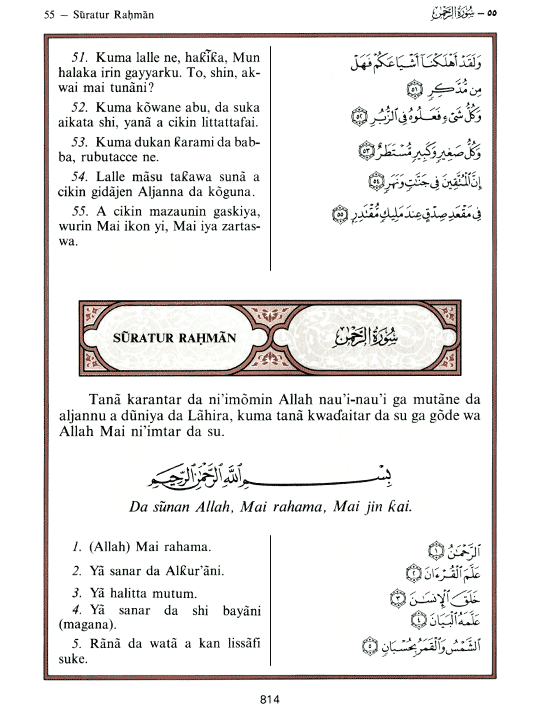 55 — Sūratur Raḥmān
٥٥ – سُورَةُ الرَّحْمٰن
51. Kuma lalle ne, haƙĩƙa, Mun
halaka irin gayyarku. To, shin, ak-
wai mai tunãni?
52. Kuma kõwane abu, da suka
aikata shi, yanã a cikin littattafai.
53. Kuma dukan ƙarami da bab-
ba, rubutacce ne.
54. Lalle mãsu taƙawa sunã a
cikin gidãjen Aljanna da kõguna.
55. A cikin mazaunin gaskiya,
wurin Mai ikon yi, Mai iya zartas-
wa.
وَلَقَدْ أَهْلَكْنَآ أَشْيَاعَكُمْ فَهَلْ
مِن مُّدَّكِرٍ ٥١
وَكُلُّ شَىْءٍ فَعَلُوهُ فِى ٱلزُّبُرِ ٥٢
وَكُلُّ صَغِيرٍ وَكَبِيرٍ مُّسْتَطَرٌ ٥٣
إِنَّ ٱلْمُتَّقِينَ فِى جَنَّٰتٍ وَنَهَرٍ ٥٤
فِى مَقْعَدِ صِدْقٍ عِندَ مَلِيكٍ مُّقْتَدِرٍۭ ٥٥
SŨRATUR RAḤMÃN
سُورَةُ الرَّحْمٰن
Tanã karantar da ni'imõmin Allah nau'i-nau'i ga mutãne da
aljannu a dũniya da Lãhira, kuma tanã kwaɗaitar da su ga gõde wa
Allah Mai ni'imtar da su.
بِسْمِ اللَّهِ الرَّحْمَٰنِ الرَّحِيمِ
Da sũnan Allah, Mai rahama, Mai jin ƙai.
1. (Allah) Mai rahama.
2. Yã sanar da Alƙur'ãni.
3. Yã halitta mutum.
4. Yã sanar da shi bayãni
(magana).
5. Rãnã da watã a kan lissãfi
suke.
ٱلرَّحْمَٰنُ ١
عَلَّمَ ٱلْقُرْءَانَ ٢
خَلَقَ ٱلْإِنسَٰنَ ٣
عَلَّمَهُ ٱلْبَيَانَ ٤
ٱلشَّمْسُ وَٱلْقَمَرُ بِحُسْبَانٍ ٥
814